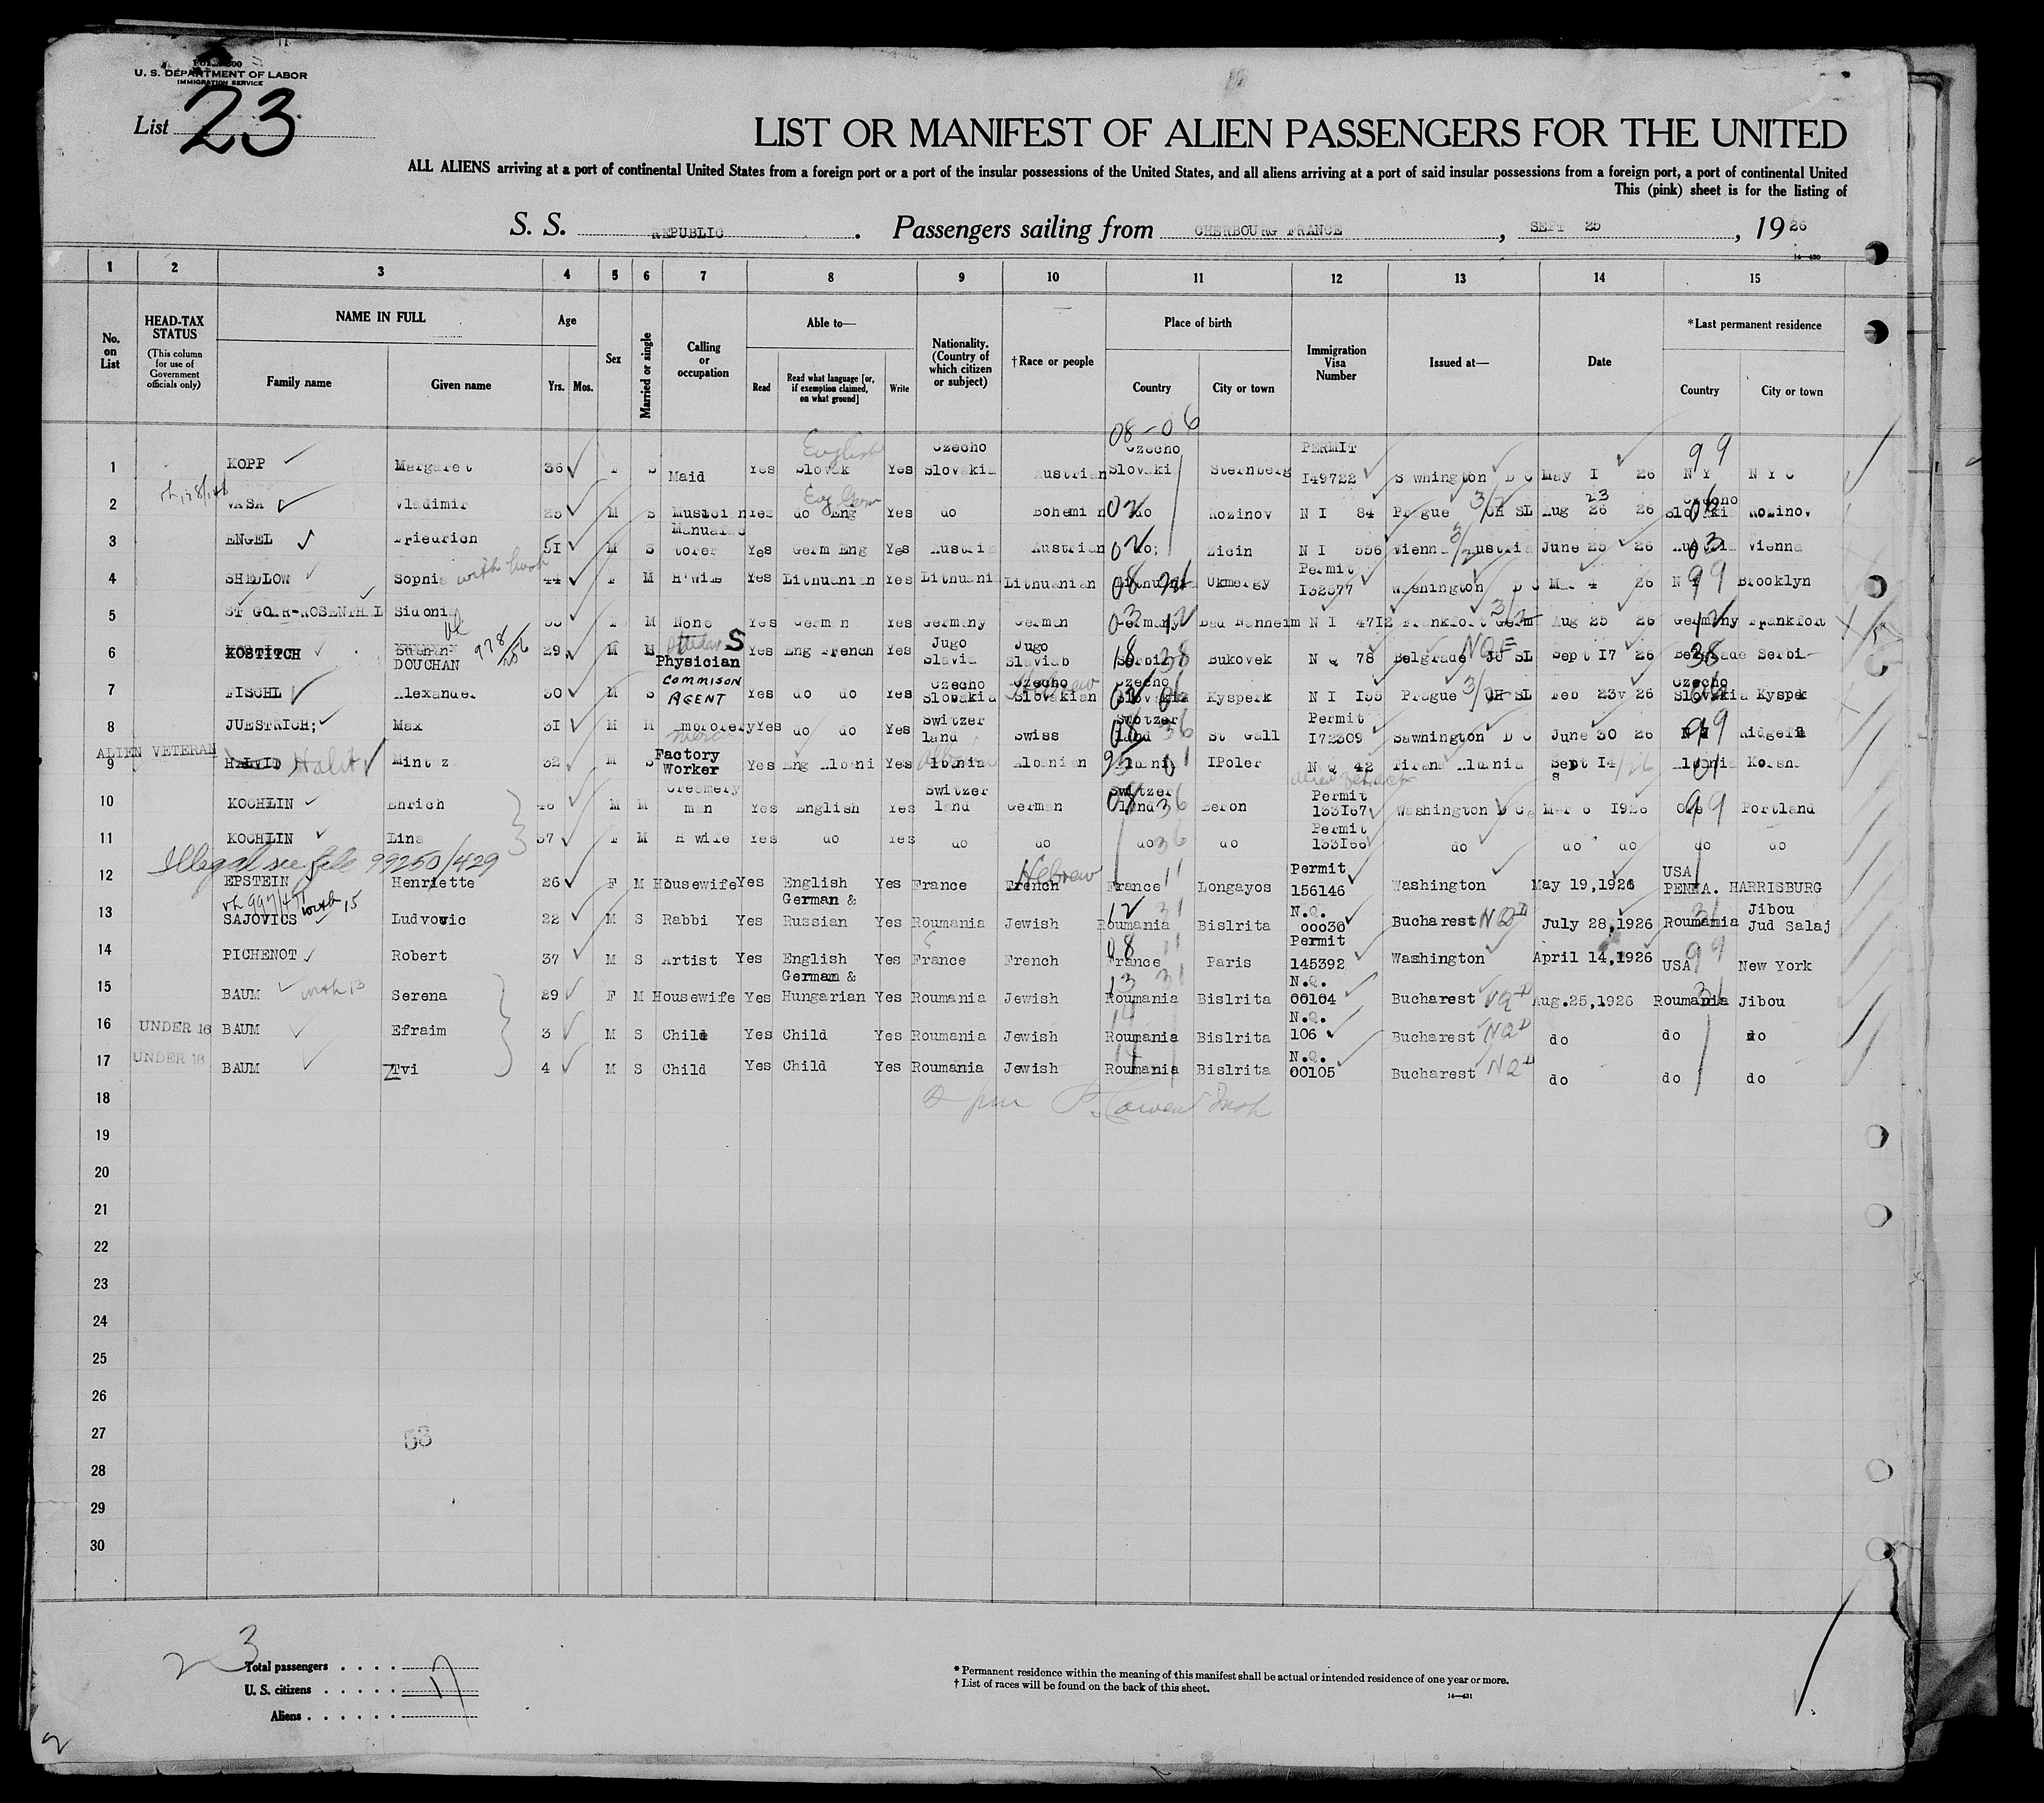 U. S. DEPARTMENT OF LABOR
IMMIGRATION SERVICE
List 23
LIST OR MANIFEST OF ALIEN PASSENGERS FOR THE UNITED
ALL ALIENS arriving at a port of continental United States from a foreign port or a port of the insular possessions of the United States, and all aliens arriving at a port of said insular possessions from a foreign port, a port of continental United
This (pink) sheet is for the listing of
S. S. REPUBLIC . Passengers sailing from CHERBOURG FRANCE , SEPT 25 , 1926
14—430
1 2 3 4 5 6 7 8 9 10 11 12 13 14 15
No. on List
HEAD-TAX STATUS
(This column for use of Government officials only)
NAME IN FULL
Family name Given name
Age
Yrs. Mos.
Sex
Married or single
Calling or occupation
Able to—
Read Read what language [or, if exemption claimed, on what ground] Write
Nationality. (Country of which citizen or subject)
†Race or people
Place of birth
Country City or town
Immigration Visa Number
Issued at—
Date
*Last permanent residence
Country City or town
08-06
1 KOPP Margaret 36 F S Maid Yes Slovak English Yes Czecho Slovakia Austrian Czecho Slovaki Sternberg PERMIT I49722 Sawhnington D C May I 26 N Y 99 N Y C
2 VASA Vladimir 25 M S Musician Yes do Eng Yes do Bohemin do Rozinov N I 84 Prague CH SL Aug 26 23 26 Czecho Slovaki Rozinov
3 ENGEL Friedrich 51 M S Manufac torer Yes Germ Eng Yes Austria Austrian do; Zicin N I 556 Vienna Austria June 25 26 Austria Vienna
4 SHEDLOW Sophia 44 F M H'wife Yes Lithuanian Yes Lithuani Lithuanian Lithuani Ukmergy Permit I32577 Washington D C Mar 4 26 N Y 99 Brooklyn
5 ST GOAR-ROSENTHAL Sidonia 55 F M None Yes German Yes Germany German Germany Bad Nanheim N I 4712 Frankfort Germ Aug 25 26 Germany Frankfort
6 KOSTITCH DOUCHAN 978/256 29 M S Physician Yes Eng French Yes Jugo Slavia Jugo Slaviab Serbia Bukovek N Q 78 Belgrade JU SL NQE Sept 17 26 Belgrade Serbi-
7 FISCHL Alexander 50 M S COMMISON AGENT Yes do do Yes Czecho Slovakia Czecho Slovakian Hebrew Czecho Slovakia Kysperk N I I55 Prague CH SL Feb 23v 26 Czecho Slovakia Kyspek
8 JUESTRICH; Max 31 M M Embrodery Yes do do Yes Switzer land Swiss Switzer land St Gall Permit I72309 Sawnington D C June 30 26 N J 99
ALIEN VETERAN
9 Halit Mintz 32 M S Factory Worker Yes Eng Albani Yes Albania Albanian Albania IPoler N Q 42 Tirana Albania Sept I4 Albania
10 KOCHLIN Ehrich 48 M M Creamery man Yes English Yes Switzer land German Switzer land Beron Permit 133167 Washington D C Mar 6 1926 Ore 99 Portland
11 KOCHLIN Lina 37 F M H wife Yes do Yes do do do do Permit 133166 do do do do do
Illegal see file 99250/429
12 EPSTEIN Henriette 26 F M Housewife Yes English Yes France French Hebrew France Longayos Permit 156146 Washington May 19,1926 USA PENNA. HARRISBURG
13 SAJOVICS with 15 Ludvowic 22 M S Rabbi Yes German & Russian Yes Roumania Jewish Roumania Bislrita N.Q. 00030 Bucharest July 28,1926 Roumania Jibou Jud Salaj
14 PICHENOT Robert 37 M S Artist Yes English Yes France French France Paris Permit 145392 Washington April 14,1926 USA 99 New York
15 BAUM with 13 Serena 29 F M Housewife Yes German & Hungarian Yes Roumania Jewish Roumania Bislrita N.Q. 00104 Bucharest Aug.25,1926 Roumania Jibou
16 UNDER 16 BAUM Efraim 3 M S Child Yes Child Yes Roumania Jewish Roumania Bislrita N.Q. 106 Bucharest do do do
17 UNDER 16 BAUM Zvi 4 M S Child Yes Child Yes Roumania Jewish Roumania Bislrita N.Q. 00105 Bucharest do do do
18
19
20
21
22
23
24
25
26
27
28
29
30
Total passengers . . . .
U. S. citizens . . . . . 17
Aliens . . . . . .
* Permanent residence within the meaning of this manifest shall be actual or intended residence of one year or more.
† List of races will be found on the back of this sheet.
14—431